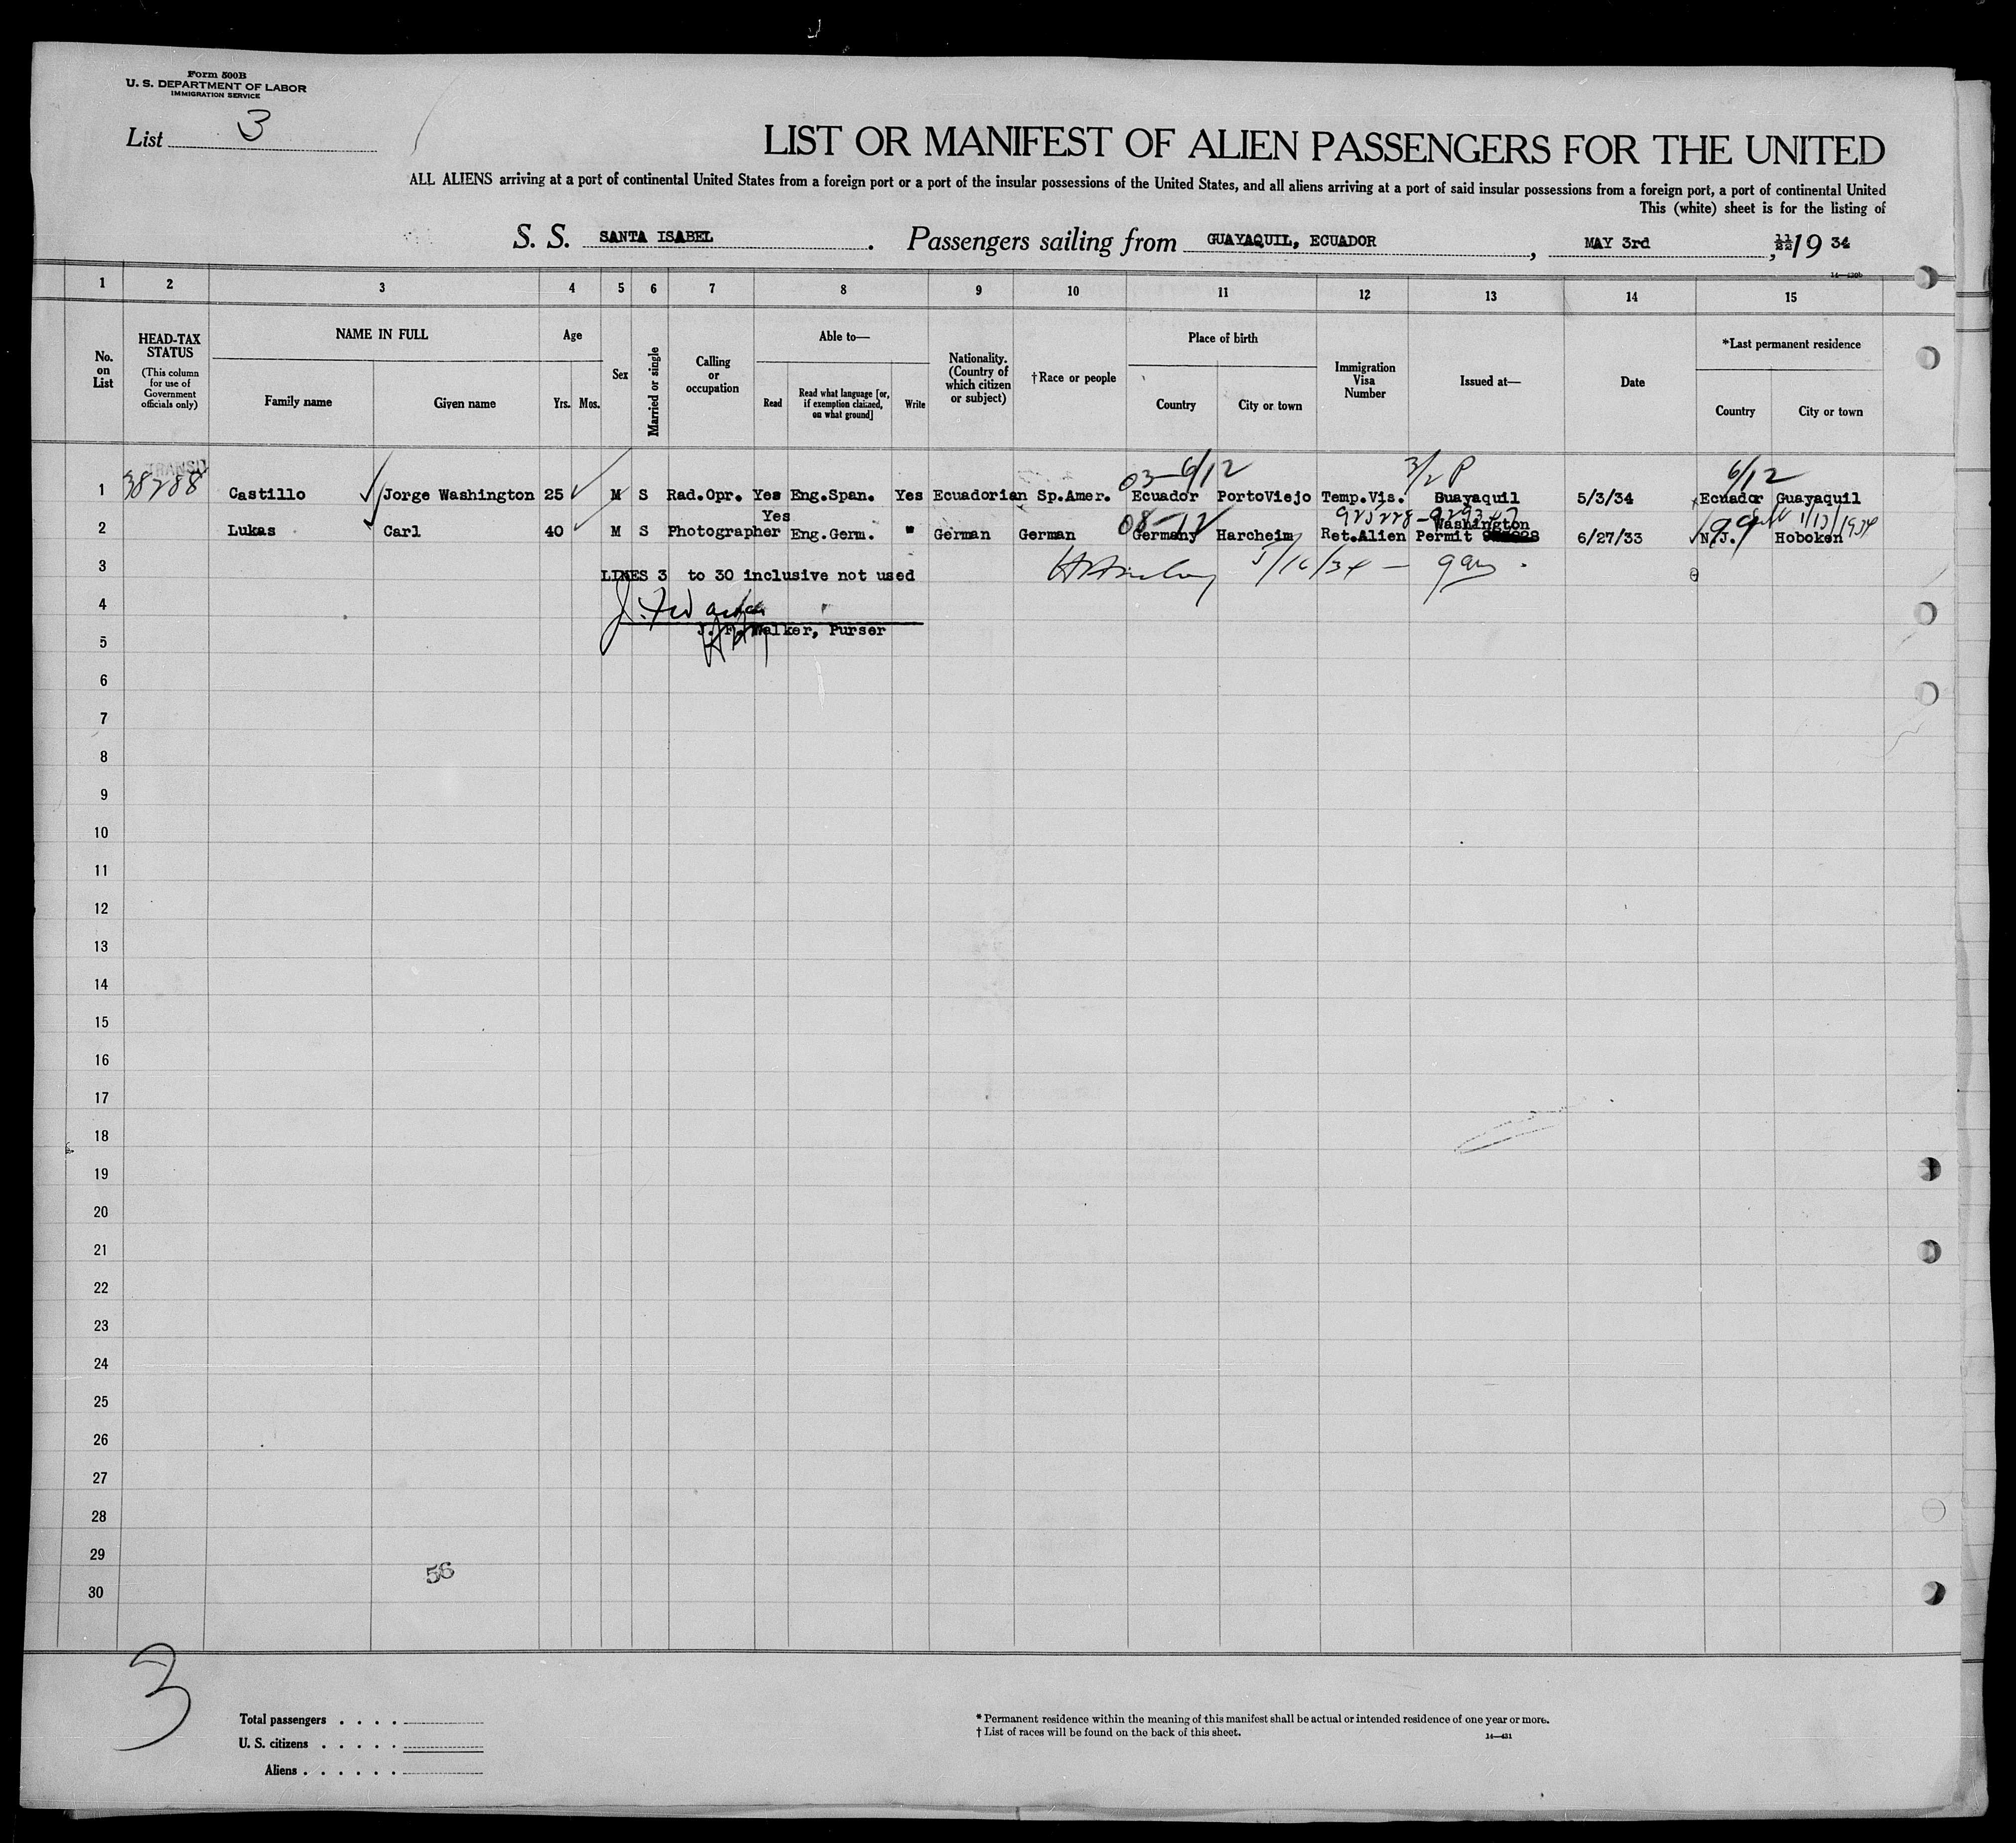 Form 500B
U. S. DEPARTMENT OF LABOR
IMMIGRATION SERVICE
List 3
LIST OR MANIFEST OF ALIEN PASSENGERS FOR THE UNITED
ALL ALIENS arriving at a port of continental United States from a foreign port or a port of the insular possessions of the United States, and all aliens arriving at a port of said insular possessions from a foreign port, a port of continental United
This (white) sheet is for the listing of
S. S. SANTA ISABEL. Passengers sailing from GUAYAQUIL, ECUADOR, MAY 3rd, 19 34
1 2 3 4 5 6 7 8 9 10 11 12 13 14 15
No. on List
HEAD-TAX STATUS
(This column for use of Government officials only)
NAME IN FULL
Family name
Given name
Age
Yrs. Mos.
Sex
Married or single
Calling or occupation
Able to—
Read
Read what language [or, if exemption claimed, on what ground]
Write
Nationality. (Country of which citizen or subject)
†Race or people
Place of birth
Country
City or town
Immigration Visa Number
Issued at—
Date
*Last permanent residence
Country
City or town
TRANSIT
03-6/12 3/2 P 6/12
1 38288 Castillo Jorge Washington 25 M S Rad.Opr. Yes Eng.Span. Yes Ecuadorian Sp.Amer. Ecuador PortoViejo Temp.Vis. Guayaquil 5/3/34 Ecuador Guayaquil
Yes 08-12 Washington 99 1/13/1934
2 Lukas Carl 40 M S Photographer Eng.Germ. " German German Germany Harcheim Ret.Alien Permit 6/27/33 N.J. Hoboken
3 LINES 3 to 30 inclusive not used 5/16/34 —
4
J. F. Walker, Purser
5
6
7
8
9
10
11
12
13
14
15
16
17
18
19
20
21
22
23
24
25
26
27
28
29
56
30
3
Total passengers . . . .
U. S. citizens . . . . .
Aliens . . . . . .
* Permanent residence within the meaning of this manifest shall be actual or intended residence of one year or more.
† List of races will be found on the back of this sheet.
14—431